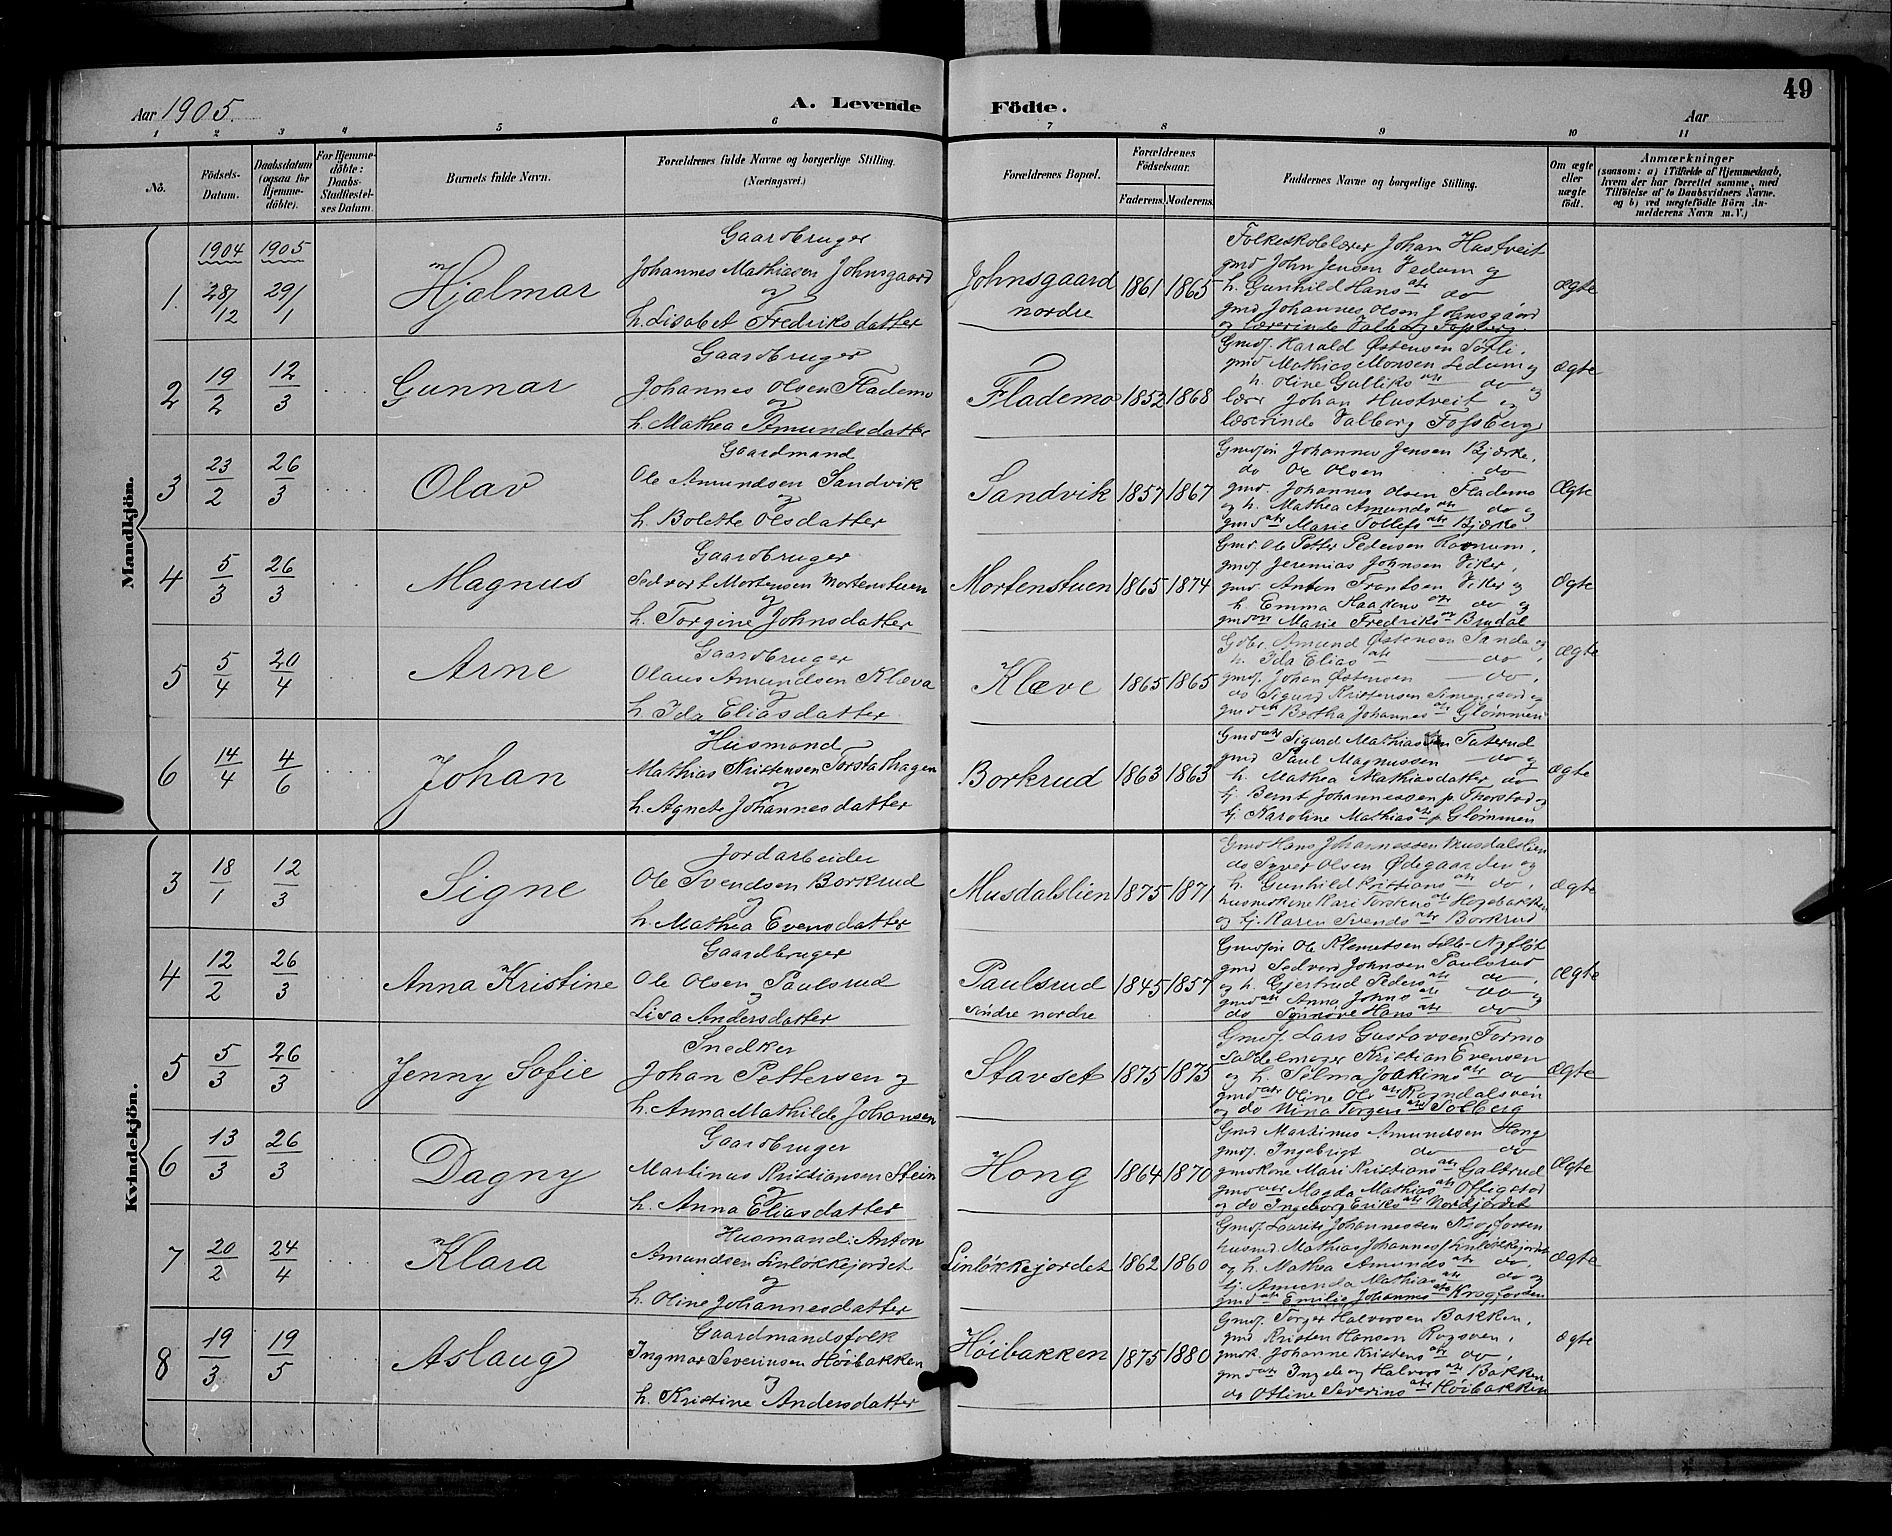 49
Aar 1905.
A. Levende Födte.
Aar
1 2 3 4 5 6 7 8 9 10 11
No.
Födsels-Datum.
Daabsdatum (ogsaa for Hjemmedöbte).
For Hjemmedöbte: Daabs-Stadfæstelses Datum.
Barnets fulde Navn.
Forældrenes fulde Navne og borgerlige Stilling. (Næringsvei.)
Forældrenes Bopæl.
Forældrenes Födselsaar.
Faderens. Moderens.
Faddernes Navne og borgerlige Stilling.
Om ægte eller uægte födt.
Anmærkninger
(saasom: a) i Tilfælde af Hjemmedaab, hvem der har forrettet samme, med Tilföielse af to Daabsvidners Navne, og b) ved uægtefödte Börn Anmelderens Navn m. V.)
Mandkjön.
1904 1905
1. 28/12 29/1 Hjalmar
Gaardbruger
Johannes Mathiasen Johnsgaard
og
h. Lisabet Fredriksdatter
Johnsgaard nordre 1861 1865
Folkeskolelærer Johan Hustveit
gmd John Jensen Vedum og
h. Gunhild Hans dtr do
gmd Johannes Olsen Johnsgaard
og lærerinde Valborg Fossberg
Ægte
2 19/2 12/3 Gunnar
Gaardbruger
Johannes Olsen Flademo
og
h. Mathea Amundsdatter
Flademo 1852 1868
Gmdf. Harald Østensen Søtli,
gmd Mathias Monsen Sedum og
h. Oline Gulliks dtr do
lærer Johan Hustveit og
lærerinde Valborg Fossberg
Ægte
3 23/2 26/3 Olav
Gaardmand
Ole Amundsen Sandvik
og
h. Bolette Olsdatter
Sandvik 1857 1867
Gmdsøn Johannes Jensen Bjærke,
do Ole Olsen do
gmd. Johannes Olsen Flademo
og h. Mathea Amunds dtr do og
gmd dtr Marie Tollefs dtr Bjærke
Ægte
4 5/3 26/3 Magnus
Gaardbruger
Sedvart Mortensen Mortenstuen
og
h. Torgine Johnsdatter
Mortenstuen 1865 1874
Gmd. Ole Petter Pedersen Rognum,
gmdf Jeremias Johnsen Viker,
gmd Anton Frantsen Viker og
h. Emma Haakens dtr do og
Marie Fredriks dtr Brudal
Ægte
5 5/4 20/4 Arne
Gaardbruger
Olaus Amundsen Klæva
og
h. Ida Eliasdatter
Klæve 1865 1865
Gdbr. Amund Østensen Sande og
h. Ida Elias dtr do,
gmdf. Johan Østensen do,
do Sigurd Kristensen Simengaard og
gmd dtr Bertha Johannes dtr Glømmen
Ægte
6 14/4 4/6 Johan
Husmand
Mathias Kristensen Torstadhagen
og
h. Agnete Johannesdatter
Borkrud 1863 1863
Gmd Sigurd Mathiassen Taterud
gmd Paul Magnussen do og
h. Mathea Mathiasdatter do
tj. Bernt Johannessen p. Thorstad og
tj. Karoline Mathias dtr p. Glømmen
Ægte
Kvindekjön.
3 18/1 12/3 Signe
Jordarbeider
Ole Svendsen Borkrud
og
h. Mathea Evensdatter
Musdalslien 1875 1871
Gmd Hans Johannessen Musdalslien
do Syver Olsen Ødegaarden og
h. Gunhild Kristians dtr do,
husmdkone Kari Torstens dtr Hagebakken
og tj. Karen Svends dtr Borkrud
Ægte
4 12/2 26/3 Anna Kristine
Gaardbruger
Ole Olsen Paulsrud
og
Lisa Andersdatter
Paulsrud søndre nordre 1845 1857
Gmdsøn Ole Klemetsen Nyfløt
gmd Sedvard Johnsen Paulsrud
og h. Gjertrud Peders dtr do,
gmd dtr Anna Johns dtr do og
do Synnøve Hans dtr do
Ægte
5 5/3 26/3 Jenny Sofie
Snedker
Johan Pettersen og
h. Anna Mathilde Johansen
Stavset 1875 1875
Gmdf. Lars Gustavsen Formo
Sadelmager Kristian Evensen
og h. Selma Joakims dtr do
gmd dtr Oline Ols dtr Rogndalsveen
og do Nina Torgers dtr Solberg
Ægte
6 13/3 26/3 Dagny
Gaardbruger
Martinus Kristiansen Stein
og
h. Anna Eliasdatter
Hong 1864 1870
Gmd Martinus Amundsen Hong
gmdf. Ingebrigt do do
gmdkone Mari Kristians dtr Galterud
gmd dtr Magda Mathias dtr Offigstad
og do Ingeborg Eriks dtr Nordjordet
Ægte
7 20/2 24/4 Klara
Husmand: Anton
Amundsen Linløkkejordet
og
h. Oline Johannesdatter
Linløkkejordet 1862 1860
Gmdf. Laurits Johannessen Kragfossen
husmd. Mathias Johannesf Linløkkejordet
og h. Mathea Amunds dtr do,
tj. Amunda Mathias dtr do og
gmd dtr Emilie Johannes dtr Kragfossen
Ægte
8 19/3 19/5 Aslaug
Gaardmandsfolk
Ingmar Severinsen Høibakken
og
h. Kristine Andersdatter
Høibakken 1875 1880
Gmdf. Torger Halvorsen Bakken,
gmd Kristen Hansen Rogsveen,
gmdk. Johanne Kristens dtr do,
gmd dtr Ingeleog Halvors dtr Bakken
do Otline Severins dtr Høibakken
Ægte